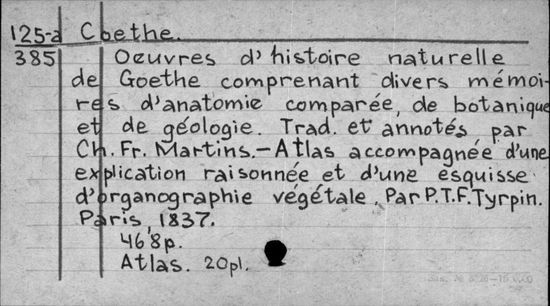 125-a Goethe.
385 Oeuvres d'histoire naturelle
de Goethe comprenant divers mémoi-
res d'anatomie comparée, de botanique
et de géologie. Trad. et annotés par
Ch. Fr. Martins.-Atlas accompagnée d'une
explication raisonnée et d'une esquisse
d'organographie végétale. Par P.T.F. Tyrpin.
Paris, 1837.
468p.
Atlas. 20pl.